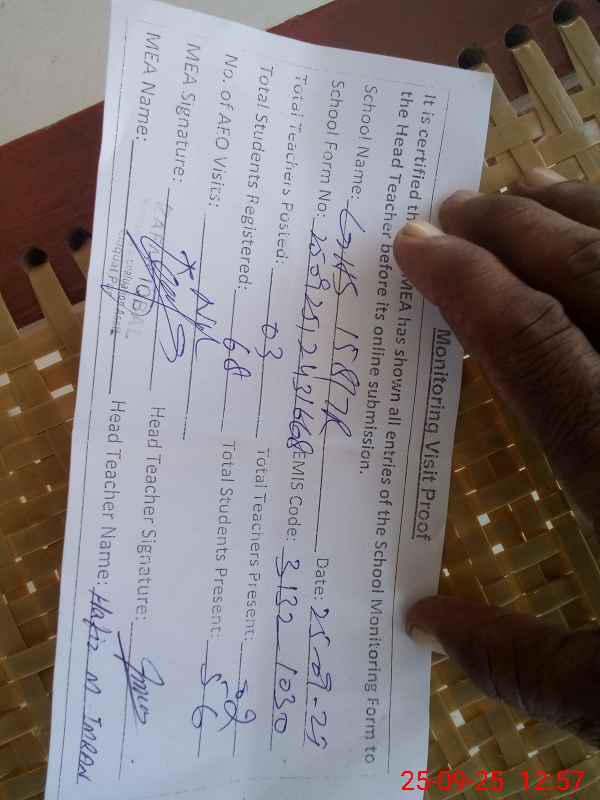 Monitoring Visit Proof
It is certified th MEA has shown all entries of the School Monitoring Form to
the Head Teacher before its online submission.
School Name: GOHS 158/7R Date: 25-09-25
School Form No: 250925124316668 EMIS Code: 31321030
Total Teachers Posted: 03 Total Teachers Present: 02
Total Students Registered: 68 Total Students Present: 56
No. of AEO Visits: Nil
MEA Signature: Head Teacher Signature:
MEA Name: Head Teacher Name: Hafiz M IMRAN
25-09-25 12:57